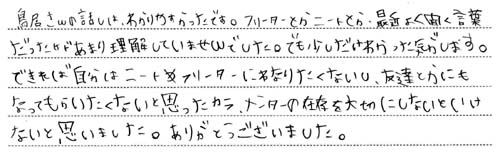 鳥居さんの話しは、わかりやすかったです。フリーターとかニートとか、最近よく聞く言葉
だったけどあまり理解していませんでした。でも少しだけわかった気がします。
できれば自分はニートやフリーターになりたくないし、友達とかにも
なってもらいたくないと思ったから、メンターの存在を大切にしないといけ
ないと思いました。ありがとうございました。